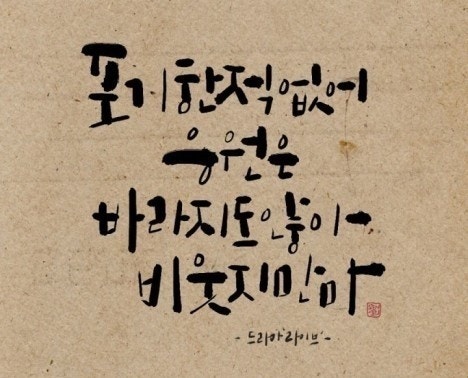 포기한적없어
응원은
바라지도않아
비웃지만마
- 드라마'라이브' -